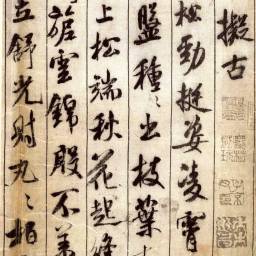 擬古
松勁挺姿凌霄
盤種〻出枝葉
上松端秋花起絳
旎雲錦殷不羞
立舒光射丸〻柏